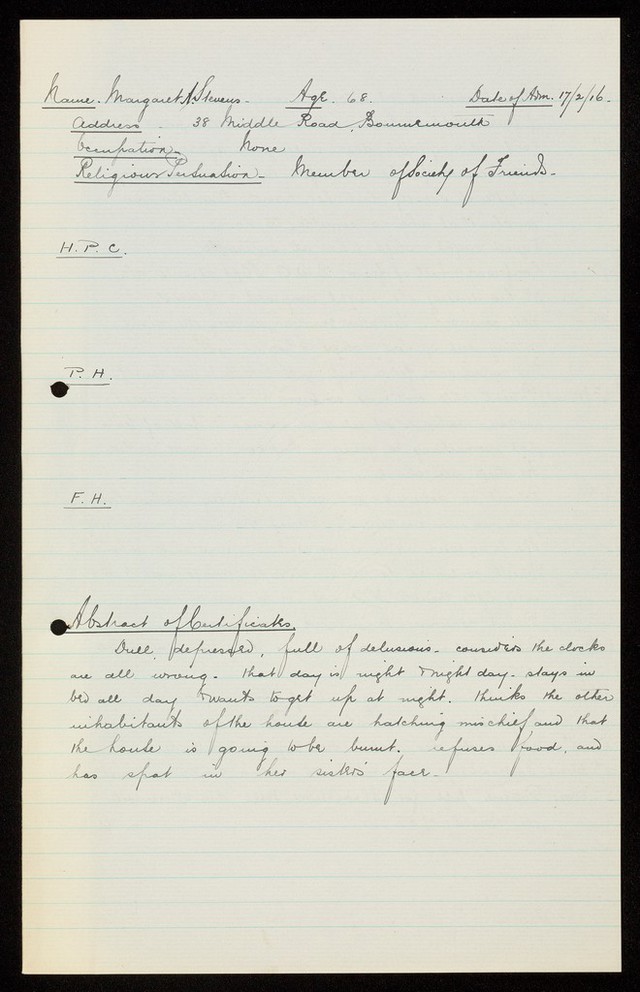 Name. Margaret A. Stevens. Age. 68. Date of Adm. 17/2/16.
Address. 38 Middle Road, Bournemouth
Occupation - None
Religious Persuasion - Member of Society of Friends.
H. P. C.
P. H.
F. H.
Abstract of Certificates.
Dull, depressed, full of delusions - considers the clocks
are all wrong - that day is night & night day - stays in
bed all day & wants to get up at night. Thinks the other
inhabitants of the house are hatching mischief and that
the house is going to be burnt. refuses food, and
has spat in her sister's face -